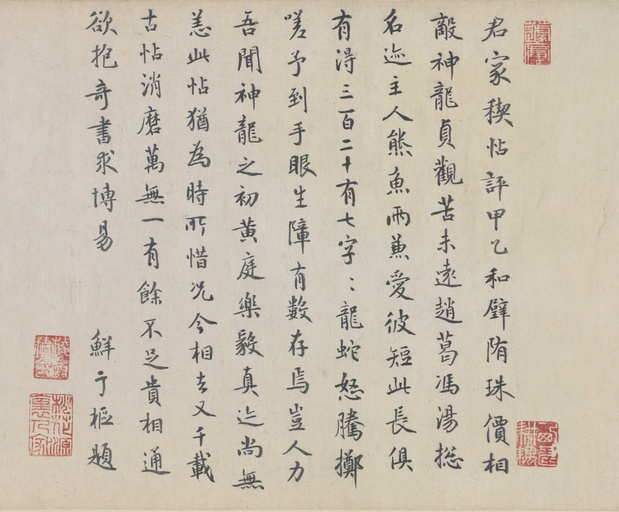 君家禊帖評甲乙和璧隋珠價相
敵神龍貞觀苦未遠趙葛馮湯揔
名迹主人熊魚兩兼愛彼短此長俱
有得三百二十有七字〻龍蛇怒騰擲
嗟予到手眼生障有數存焉豈人力
吾聞神龍之初黃庭樂毅真迹尚無
恙此帖猶為時所惜況今相去又千載
古帖消磨萬無一有餘不足貴相通
欲抱奇書求博易 鮮于樞題
桃花源里人家